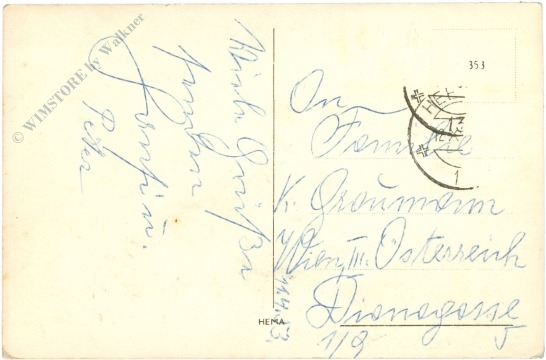 © WIMSTORE by Walkner
Viele Grüße
senden
Peter
353
An
Familie
K. Graumann
Wien III. Österreich
Dianagasse
1/9 5
HEMA